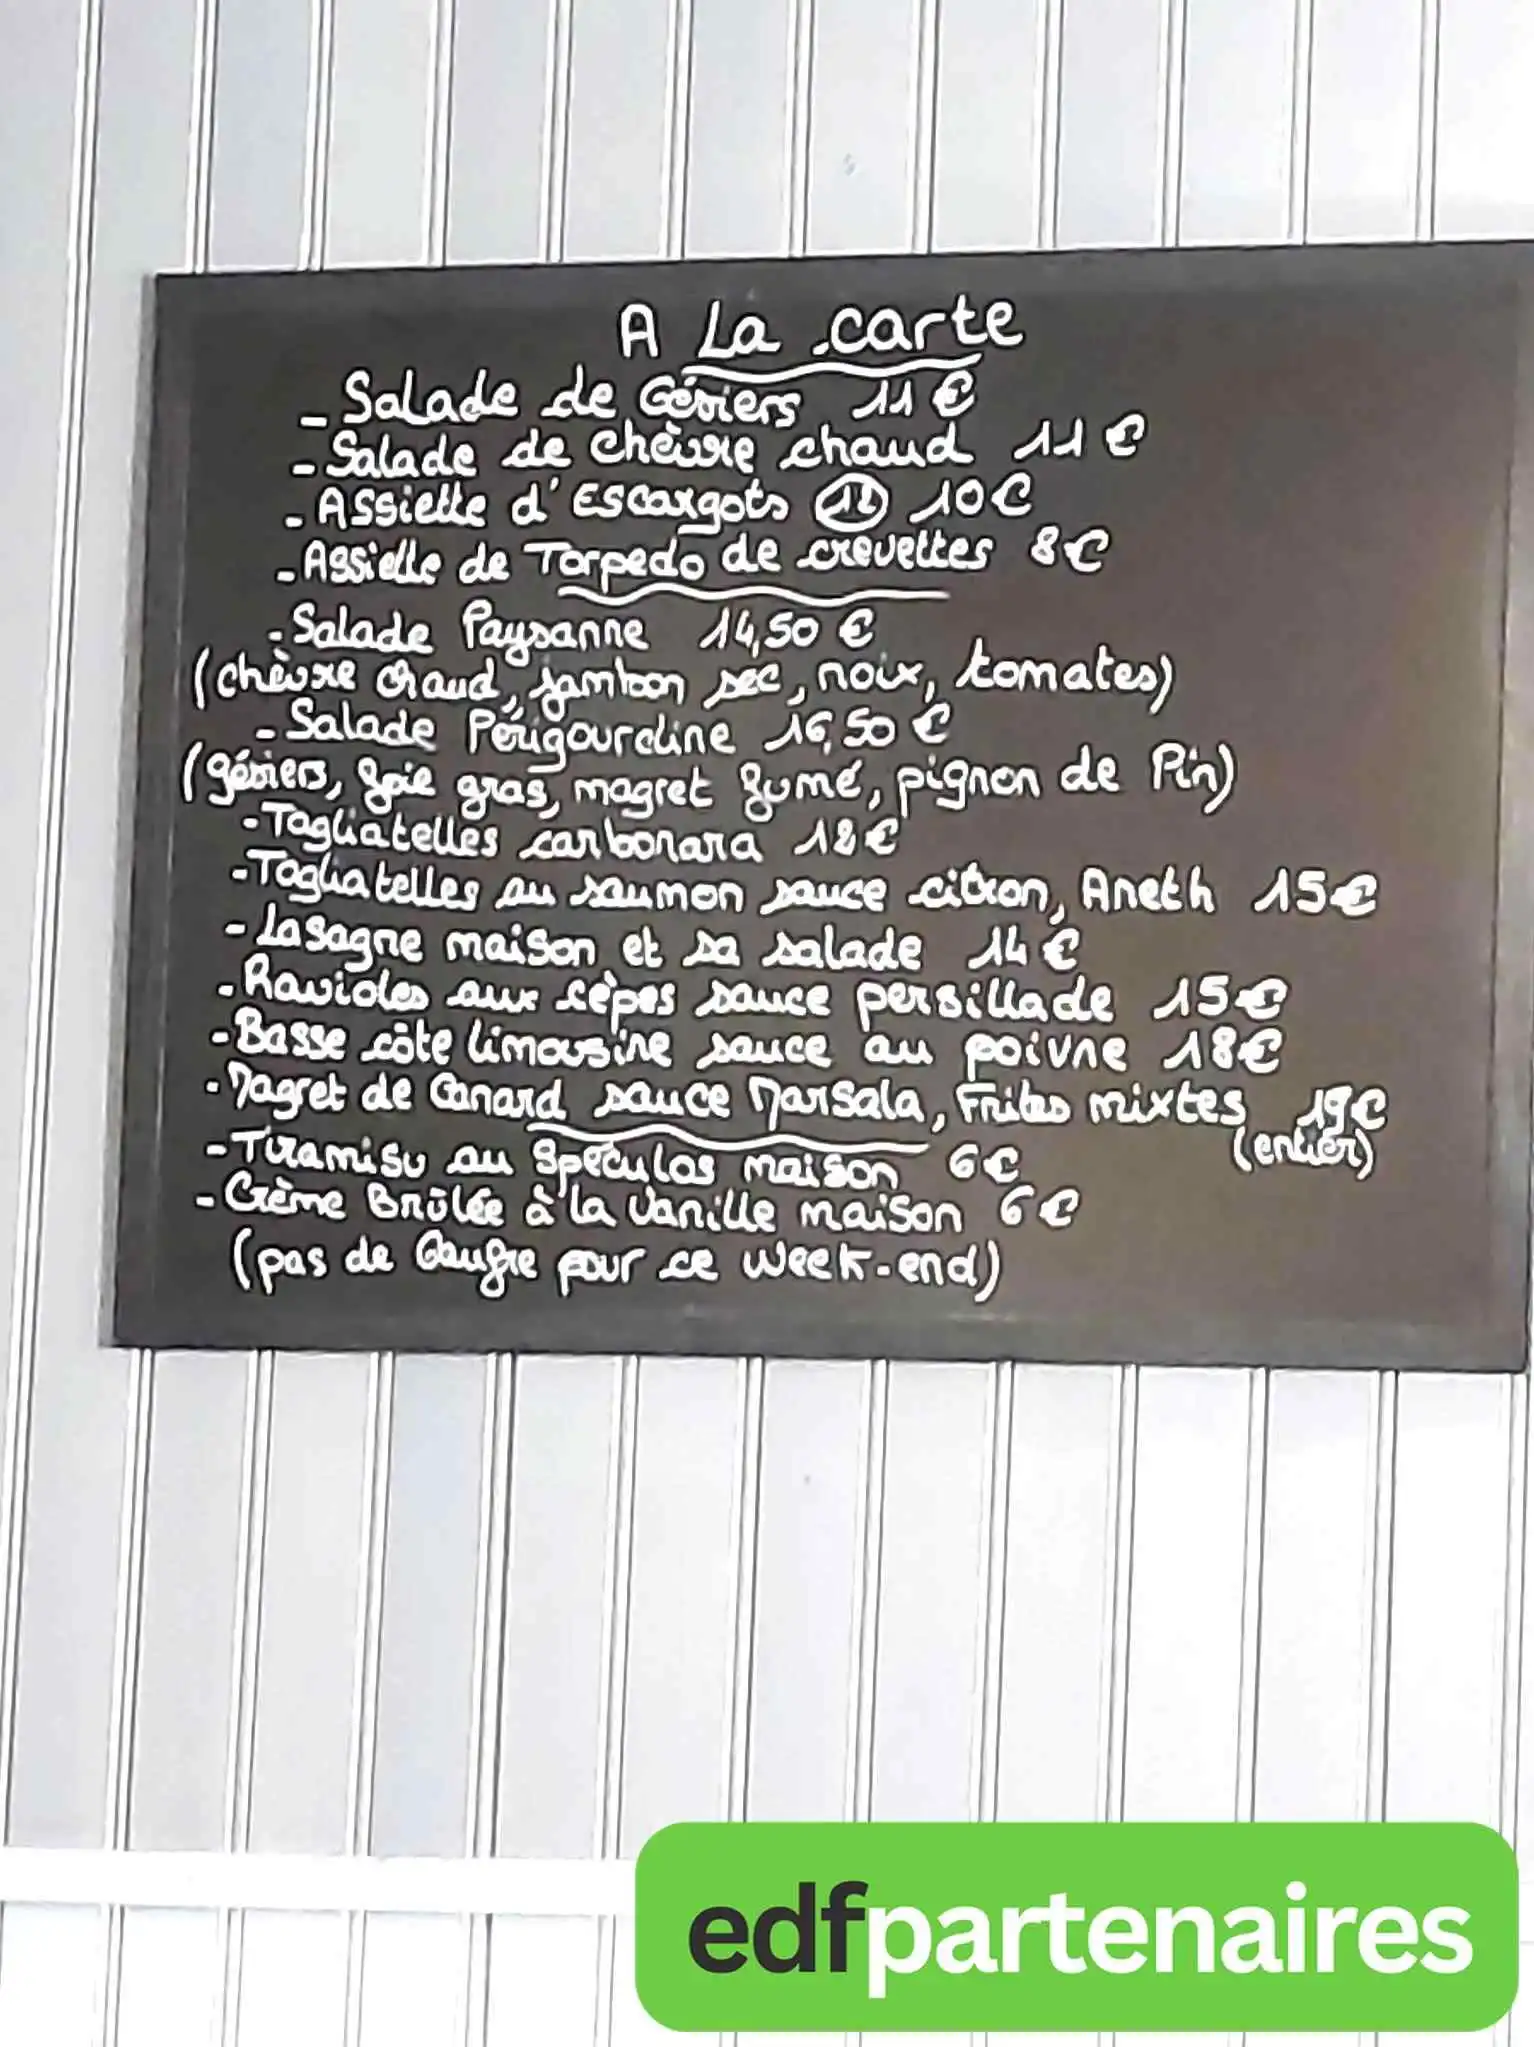 A La carte
- Salade de Gésiers 11 €
- Salade de chèvre chaud 11 €
- Assiette d'Escargots 12 10€
- Assiette de Torpedo de crevettes 8€
- Salade Paysanne 14,50 €
(chèvre chaud, jambon sec, noix, tomates)
- Salade Périgourdine 16,50 €
(gésiers, foie gras, magret fumé, pignon de Pin)
- Tagliatelles carbonara 12€
- Tagliatelles au saumon sauce citron, Aneth 15€
- Lasagne maison et sa salade 14 €
- Ravioles aux cèpes sauce persillade 15€
- Basse côte limousine sauce au poivre 18€
- Magret de Canard sauce Marsala, Frites mixtes 19€
(entier)
- Tiramisu au Speculos maison 6€
- Crème Brûlée à la Vanille maison 6€
(pas de Gaufre pour ce week-end)
edfpartenaires